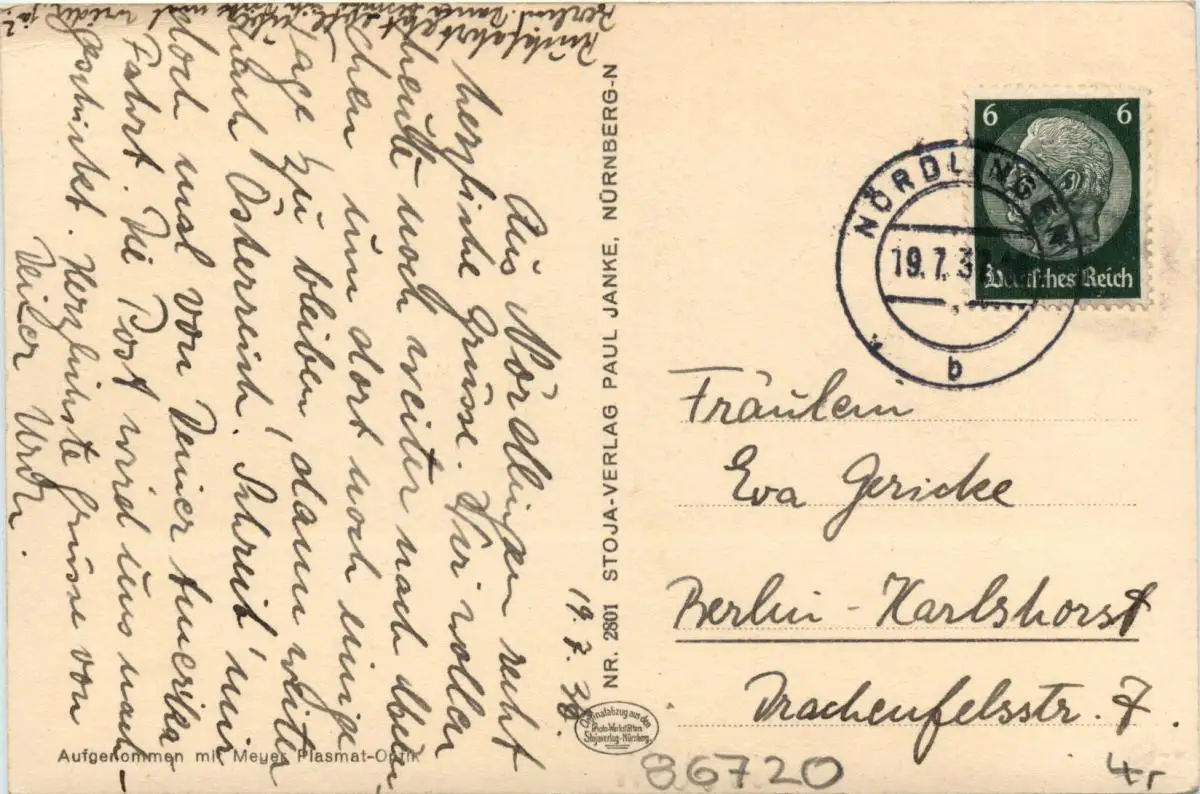 19. 7. 38.
Aus Nördlingen recht
herzliche Grüsse. Wir wollen
heute noch weiter nach
chen um dort noch einige
Tage zu bleiben, dann weiter
nach Österreich. Schreib' mir
doch mal von Deiner Amerika
Fahrt. Die Post wird uns nach-
geschickt. Herzlichste Grüsse von
Rückfahrt
Berlin.
NR. 2801 STOJA-VERLAG PAUL JANKE, NÜRNBERG-N
Originalabzug aus den
Photo-Werkstätten
Stojaverlag-Nürnberg.
Aufgenommen mit Meyer Plasmat-Optik
6 6
Deutsches Reich
NÖRDLINGEN
19.7.3
b
Fräulein
Eva Gericke
Berlin-Karlshorst
Drachenfelsstr. 7
86720